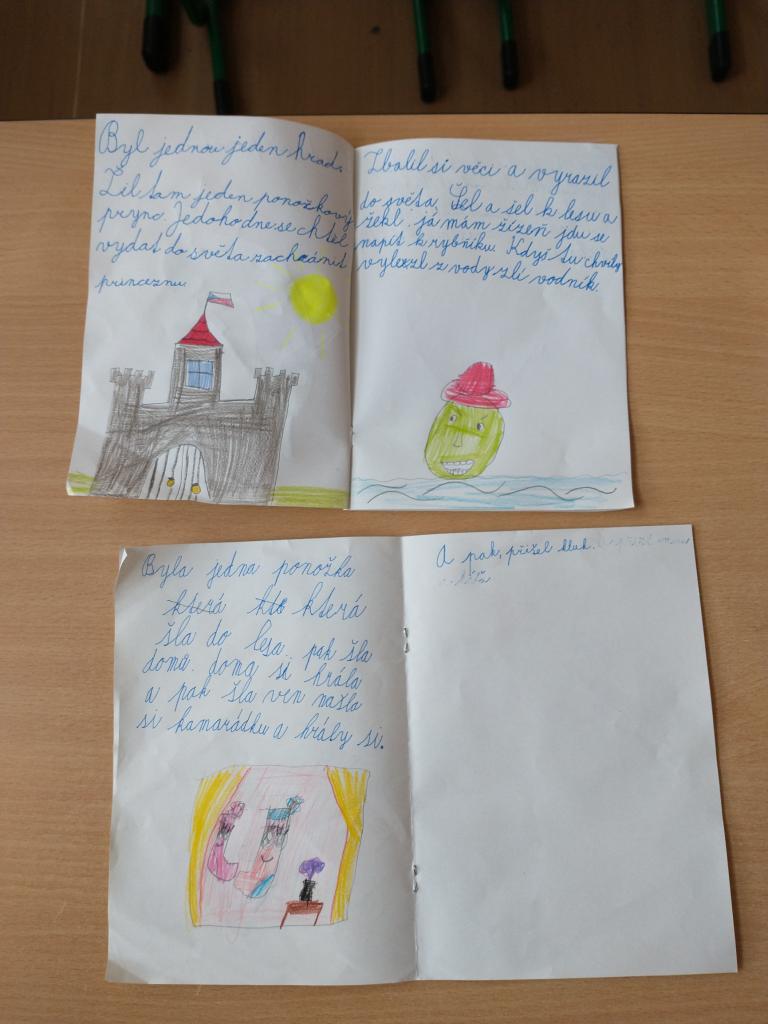 Byl jednou jeden hrad.
Žil tam jeden ponožkový
prync. Jedoho dne se chtěl
vydat do světa zachránit
princeznu.
Zbalil si věci a vyrazil
do světa. Šel a šel k lesu a
řekl, já mám žízeň jdu se
napít k rybníku. Když tu chvíly
vylezl z vody zlí vodník.
Byla jedna ponožka
která kto která
šla do lesa. pak šla
domů. doma si hrála
a pak šla ven našla
si kamarádku a hrály si.
A pak, přišel kluk.